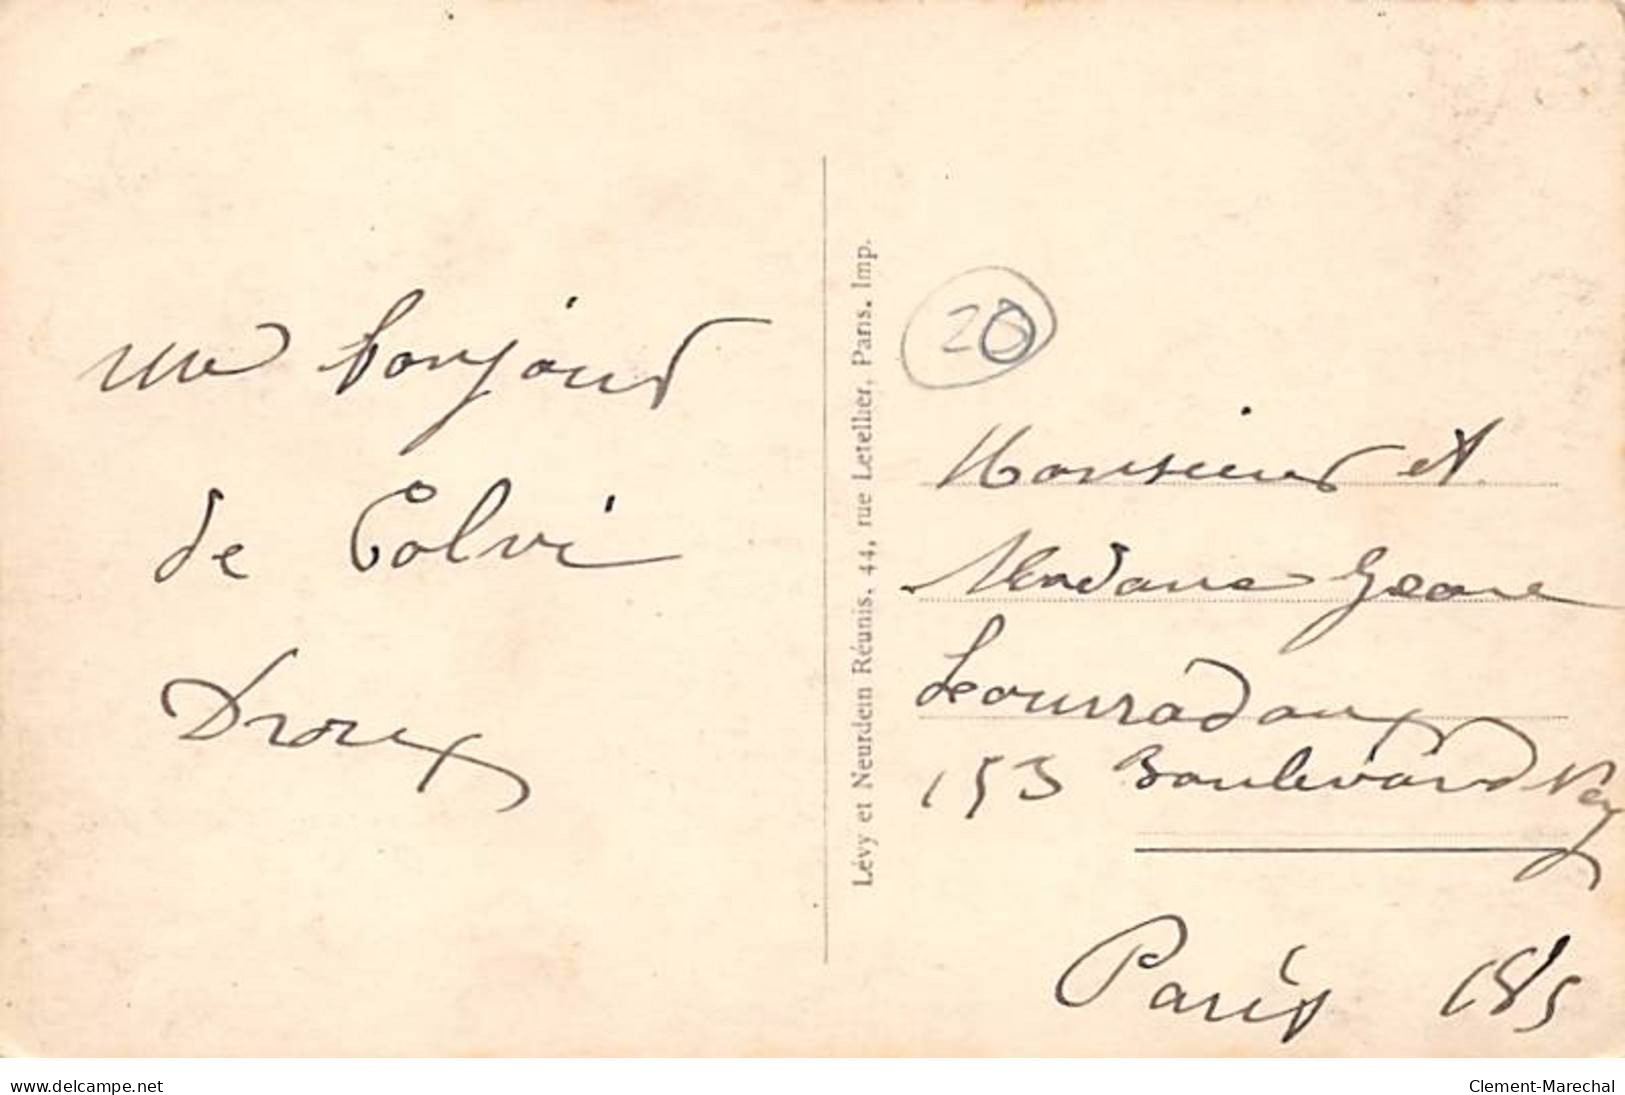 un bonjour
de Calvi
Droux
Lévy et Neurdein Réunis, 44, rue Letellier, Paris. Imp.
20
Monsieur et
Madame
153 Boulevard Ney
Paris 18
www.delcampe.net
Clement-Marechal